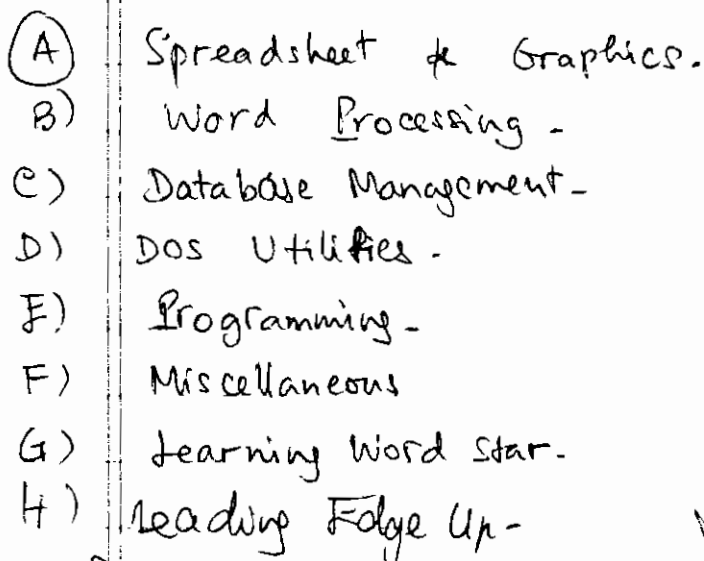 A Spreadsheet & Graphics.
B) Word Processing -
C) Database Management -
D) DOS Utilities.
E) Programming -
F) Miscellaneous
G) Learning Word Star -
H) Leading Edge Up -